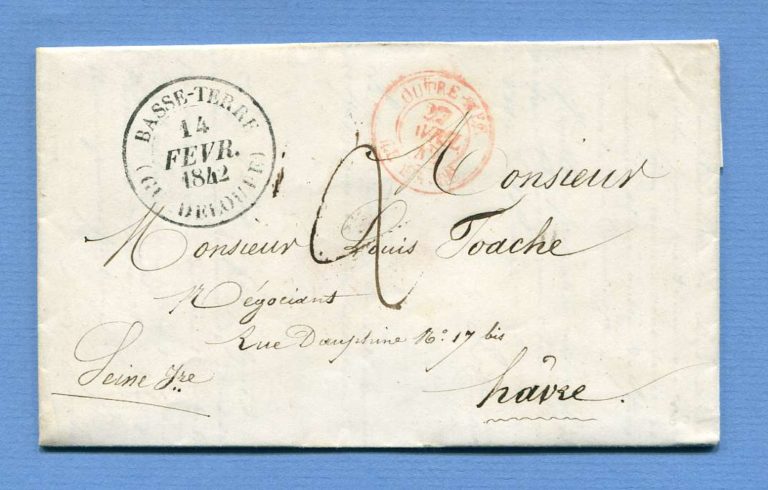 BASSE-TERRE
14
FEVR.
1842
(GUADELOUPE)
OUTRE-MER
Monsieur
2
Monsieur Louis Toache
Négociant
Rue Dauphine No. 17 bis
Seine Jre
hâvre.